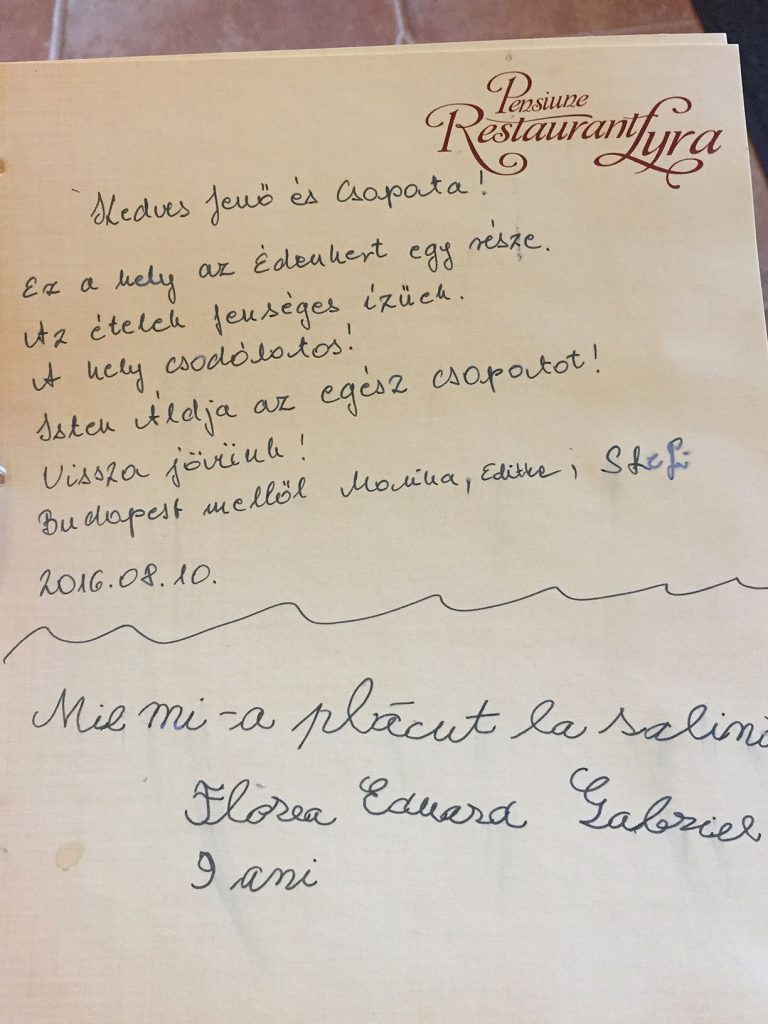 Pensiune
Restaurant Lyra
Kedves Jenő és Csapata!
Ez a hely az Édenkert egy része.
Az ételek fenséges ízüek.
A hely csodólatos!
Isten Áldja az egész csapatot!
Vissza jövünk!
Budapest mellől Monika, Editke, Stefi
2016.08.10.
Mie mi-a plăcut la salini
Florea Eduard Gabriel
9 ani